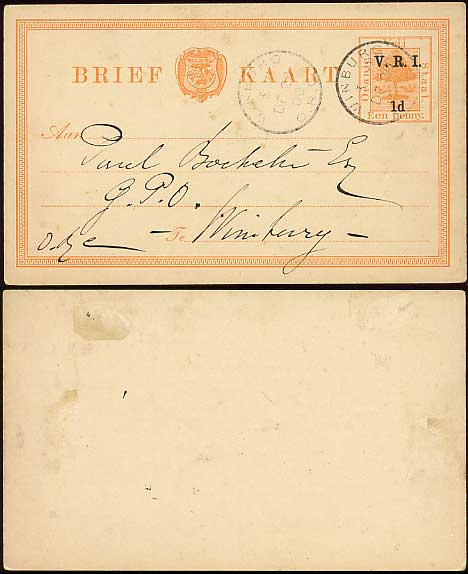 BRIEF KAART
V. R. I.
1d
Oranje
Staat.
Een penny.
WINBURG
WINBURG
Aan
Paul
Esq
G. P. O.
Te
- Winburg -